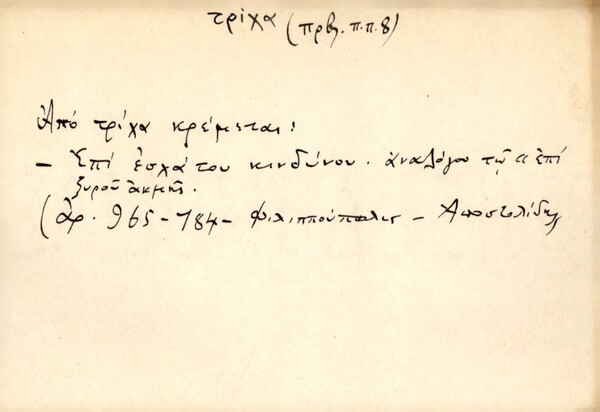 τρίχα (πρβ. π.π. 8)
Ἀπό τρίχα κρέμεται!
– Ἐπί ἐσχάτου κινδύνου. ἀναλόγο τῷ "ἐπί
ξυροῦ ἀκμῆς.
(ἀρ. 965-784- Φιλιππούπολις – Αποστολίδης